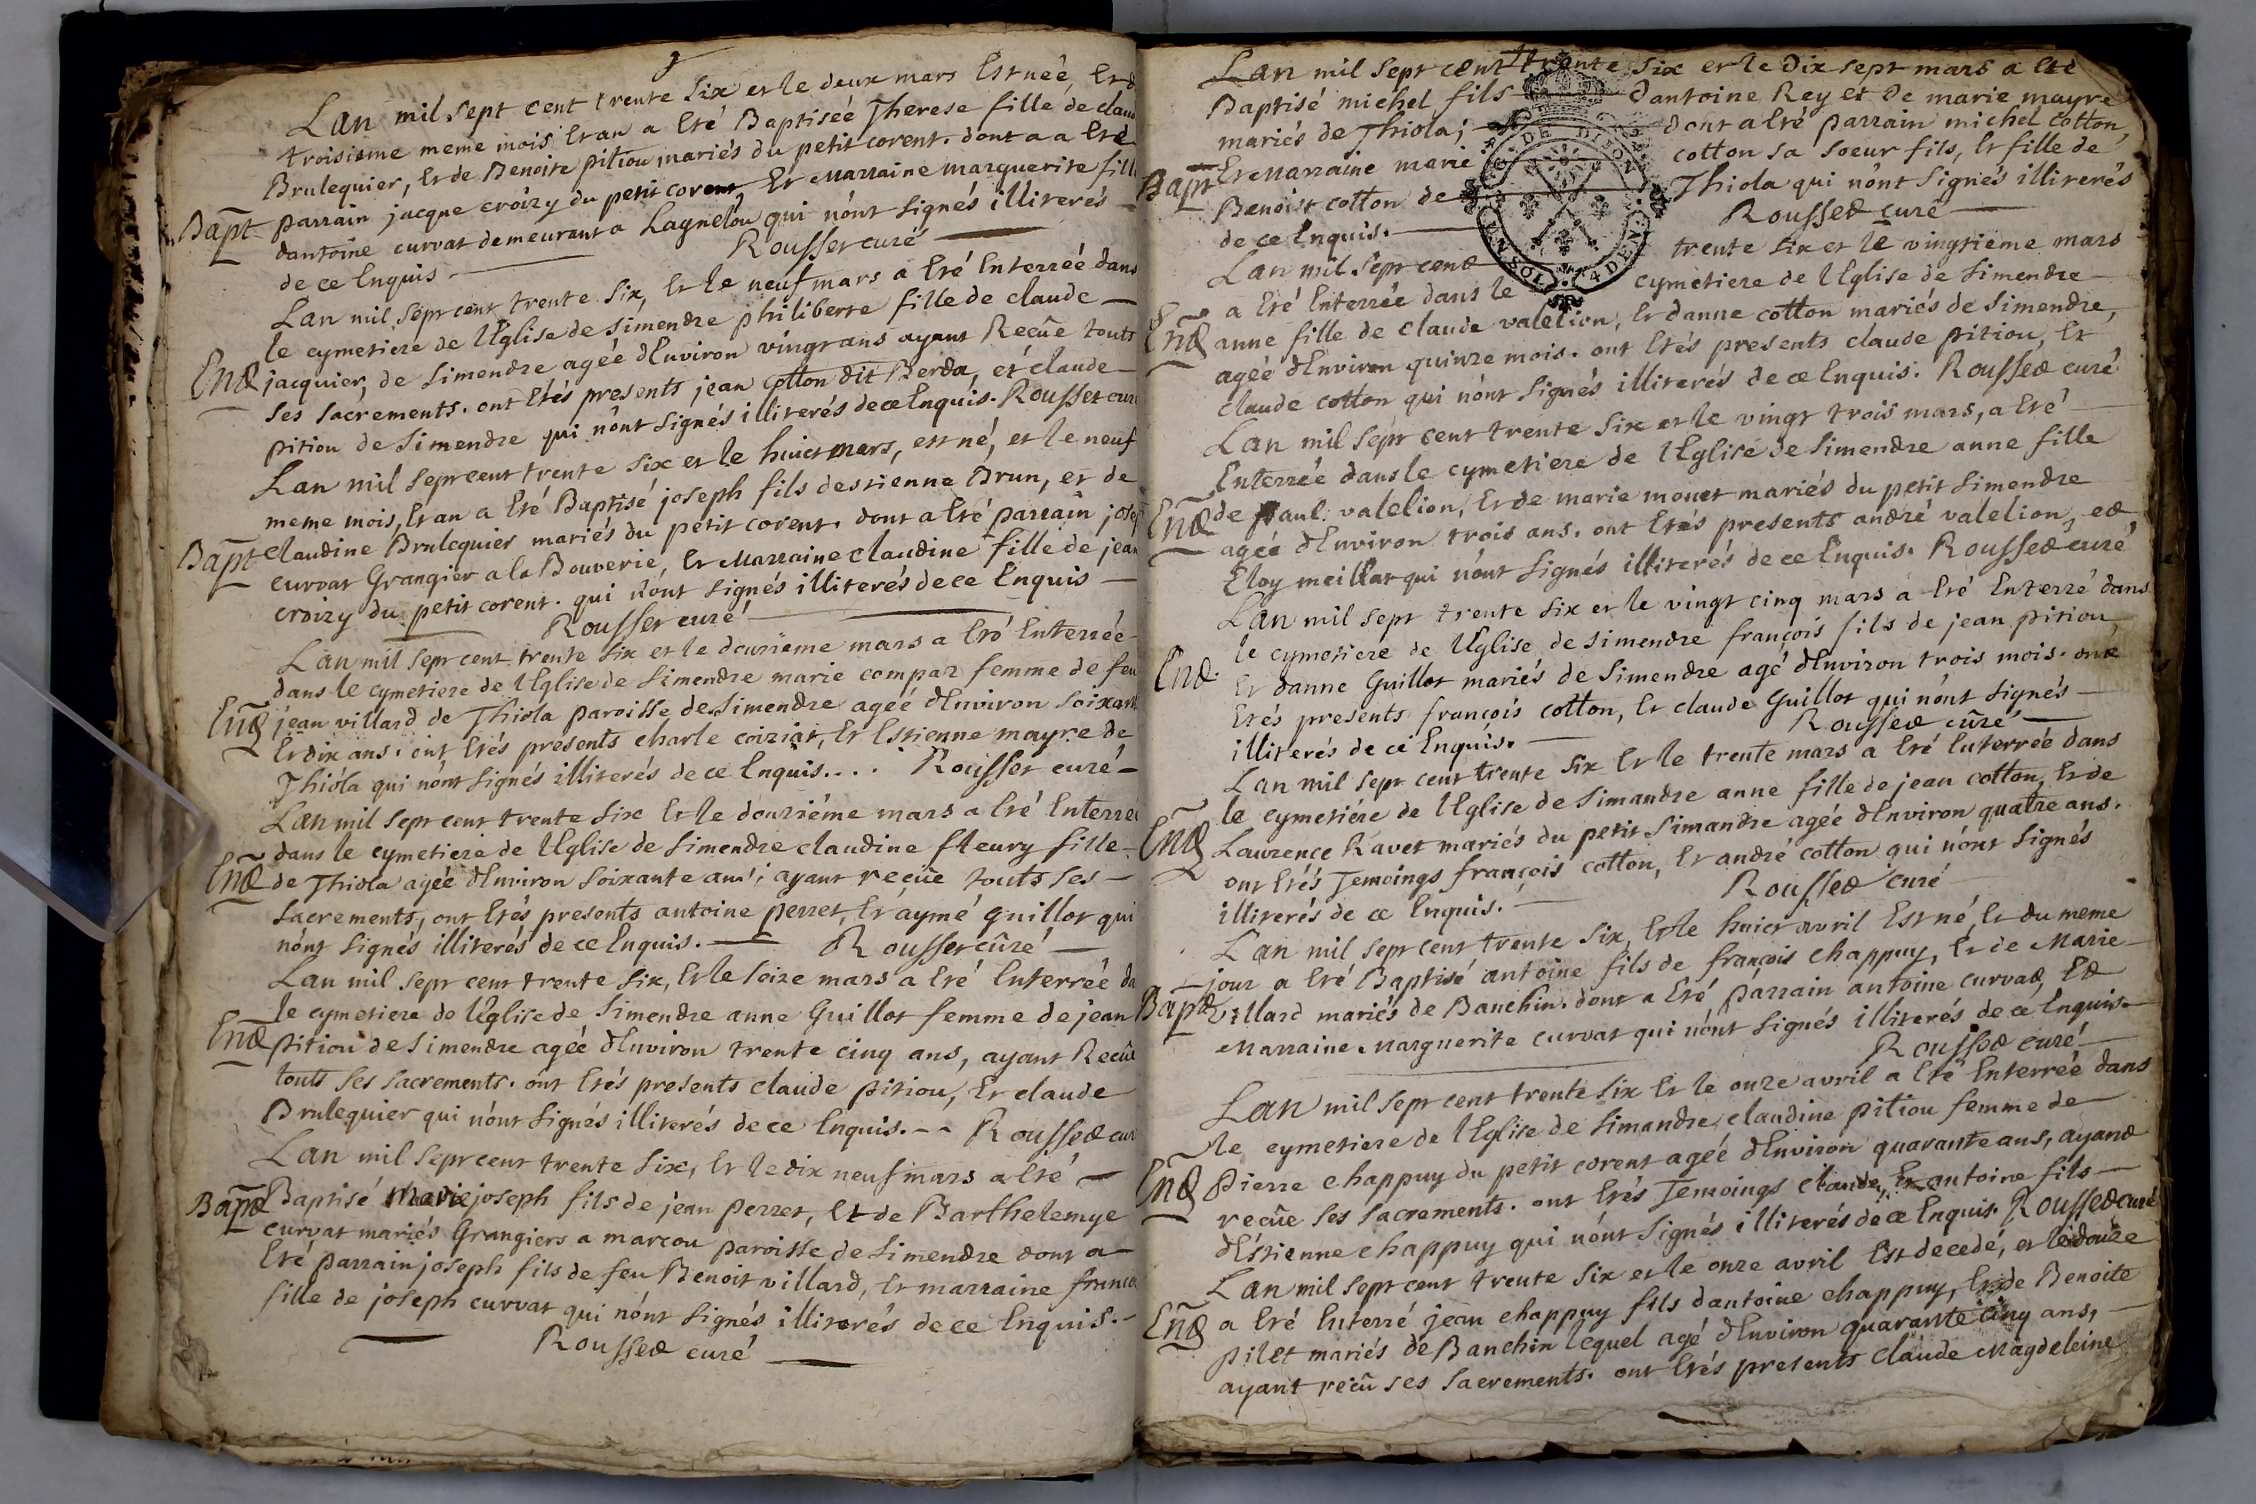 Lan mil sept cent trente six et le deux mars Est neé, Et
troisisme meme mois Et an a Eté Baptisée Therese fille de claud
Brulequier, Et de Benoite pitiou mariés du petit corent. dont a a Eté
Bapt parrain jacque croizy du petit corent Et Marraine marguerite fill
dantoine curvat demeurant a Lagnelou qui nont signés illiterés
de ce Enquis Rousset curé
Lan mil sept cent trente six, Et le neuf mars a Eté Enterreé dans
le cymetiere de lEglise de simendre philiberte fille de claude
Ent jacquier, de simendre agée dEnviron vingt ans ayant Recüe touts
ses sacrements. ont Etés presents jean cotton dit Berda, et claude
pitiou de simendre qui nont signés illiterés de ce Enquis. Rousset curé
Lan mil sept cent trente six et le huict mars, est né, et le neuf
meme mois, Et an a Eté Baptisé joseph fils destienne Brun, et de
Bapt claudine Brulequier mariés du petit corent. dont a Eté parrain josep
curvat Grangier a la Bouverie, Et Marraine claudine fille de jean
croizy du petit corent. qui nont signés illiterés de ce Enquis
Rousset curé
Lan mil sept cent trente six et le douzieme mars a Eté Enterrée
dans le cymetiere de lEglise de simendre marie compar femme de feu
Ent jean villard de Thiola paroisse de simendre ageé dEnviron soixant
Et dix ans. ont Etés presents charle coiziat, Et Estienne mayre de
Thiola qui nont signés illiterés de ce Enquis.... Rousset curé
Lan mil sept cent trente six Et le douziéme mars a Eté Enterreé
dans le cymetiere de lEglise de simendre claudine fleury fille
Ent de Thiola agée dEnviron soixante ans; ayant recüe touts ses
sacrements, ont Etés presents antoine perret, Et aymé guillot qui
nont signés illiterés de ce Enquis. Rousset curé
Lan mil sept cent trente six, Et le seize mars a Eté Enterreé da
le cymetiere de lEglise de simendre anne Guillot femme de jean
Ent pitiou de simendre ageé dEnviron trente cinq ans, ayant Recüe
touts ses sacrements. ont Etés presents claude pitiou, Et claude
Brulequier qui nont signés illiterés de ce Enquis. Rousset cur
Lan mil sept cent trente six, Et le dix neuf mars a Eté
Bapt Baptisé Marie joseph fils de jean perret, Et de Barthelemye
curvat mariés Grangiers a marcou paroisse de simendre dont a
Eté parrain joseph fils de feu Benoit villard, Et marraine france
fille de joseph curvat qui nont signés illiterés de ce Enquis.
Rousset curé
Lan mil sept cent trente six et le Dix sept mars a Eté
Baptisé michel fils dantoine Rey et de marie mayre
mariés de Thiola; dont a Eté parrain michel cotton,
Bapt Et Marraine marie cotton sa soeur fils, Et fille de
Benoist cotton de Thiola qui nont signés illiterés
de ce Enquis. Rousset curé
G. DE DIJON
UN SOL 4 DEN.
Lan mil sept cent trente six et le vingtieme mars
a Eté Enterrée dans le cymetiere de lEglise de simendre
Ent anne fille de claude valelion, Et danne cotton mariés de simendre,
ageé dEnviron quinze mois. ont Etés presents claude pitiou, Et
claude cotton qui nont signés illiterés de ce Enquis. Rousset curé
Lan mil sept cent trente six et le vingt trois mars, a Eté
Enterrée dans le cymetiere de lEglise de simendre anne fille
Ent de paul valelion, Et de marie mouet mariés du petit simendre
agée dEnviron trois ans. ont Etés presents andré valelion, et
Eloy meillat qui nont signés illiterés de ce Enquis. Rousset curé
Lan mil sept trente six et le vingt cinq mars a Eté Enterré dans
le cymetiere de lEglise de simendre françois fils de jean pitiou,
Ent. Et danne Guillot mariés de simendre agé dEnviron trois mois. ont
Etés presents françois cotton, Et claude Guillot qui nont signés
illiterés de ce Enquis. Rousset curé
Lan mil sept cent trente six Et le trente mars a Eté Enterrée dans
le cymetiére de lEglise de simandre anne fille de jean cotton, Et de
Ent Laurence Ravet mariés du petit simandre agée dEnviron quatre ans.
ont Etés Temoings françois cotton, Et andré cotton qui nont signés
illiterés de ce Enquis. Rousset curé
Lan mil sept cent trente six, Et le huict avril Est né, Et du meme
jour a Eté Baptisé antoine fils de françois chappuy, Et de Marie
Bapt villard mariés de Banchin. dont a Eté parrain antoine curvat, Et
Marraine Marguerite curvat qui nont signés illiterés de ce Enquis.
Rousset curé
Lan mil sept cent trente six Et le onze avril a Eté Enterreé dans
le cymetiere de lEglise de simandre, claudine pitiou femme de
Ent pierre chappuy du petit corent agée dEnviron quarante ans, ayant
recüe ses sacrements. ont Etés Temoings claude, Et antoine fils
dEstienne chappuy qui nont signés illiterés de ce Enquis. Rousset curé
Lan mil sept cent trente six et le onze avril Est decedé, et le douze
Ent a Eté Enterré jean chappuy fils dantoine chappuy, Et de Benoite
pilet mariés de Banchin lequel agé dEnviron quarante cinq ans,
ayant reçû ses sacrements. ont Etés presents claude Magdeleine